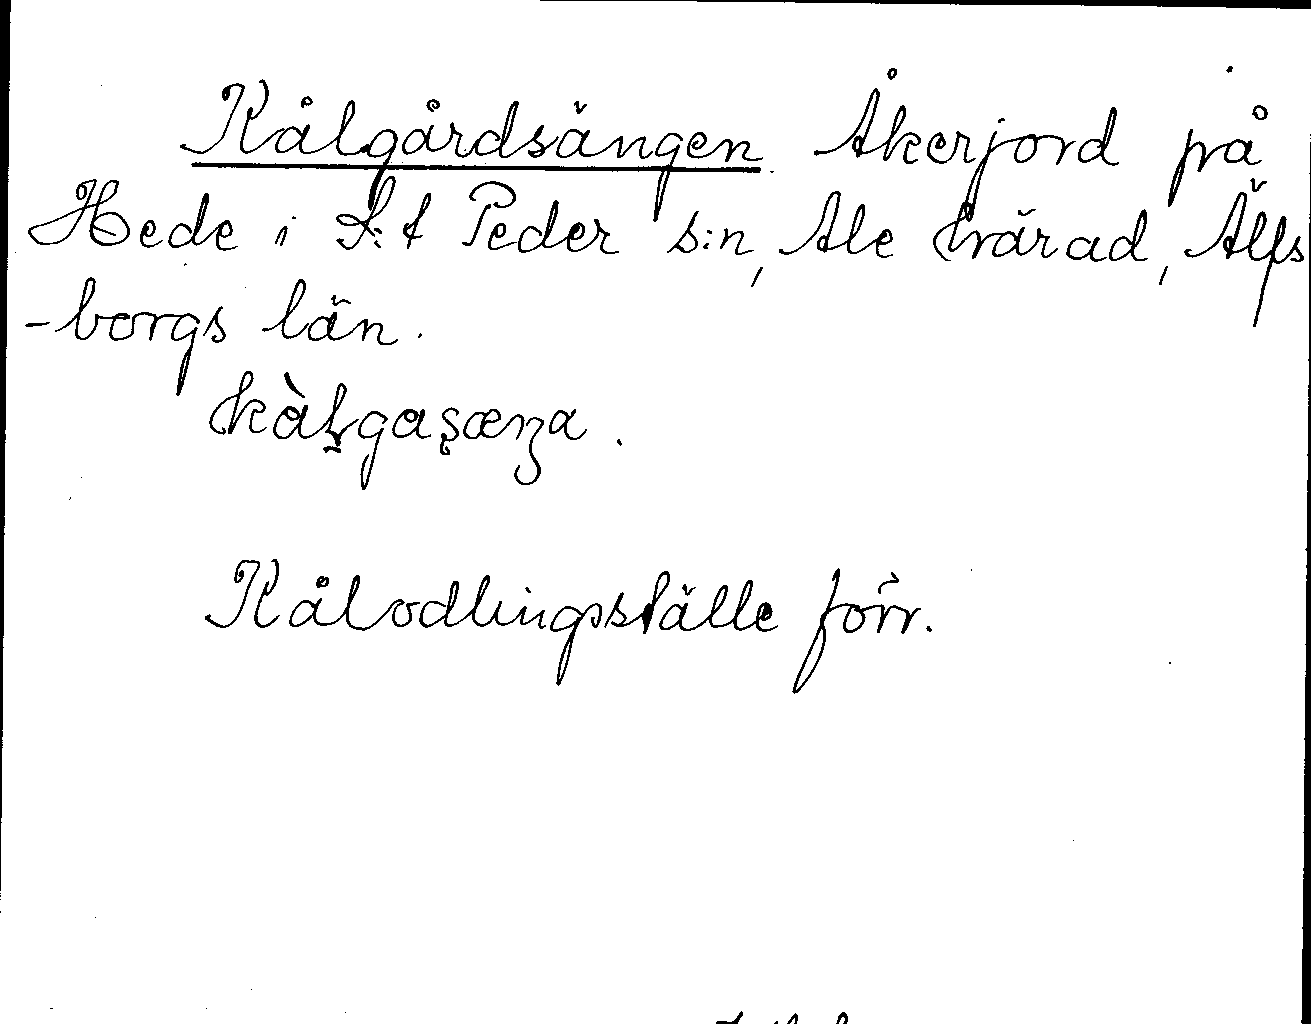 Kålgårdsängen. Åkerjord på
Hede i S:t Peder s:n, Ale härad, Älfs
-borgs län.
kàḷgaşæŋa.
Kålodlingsställe förr.